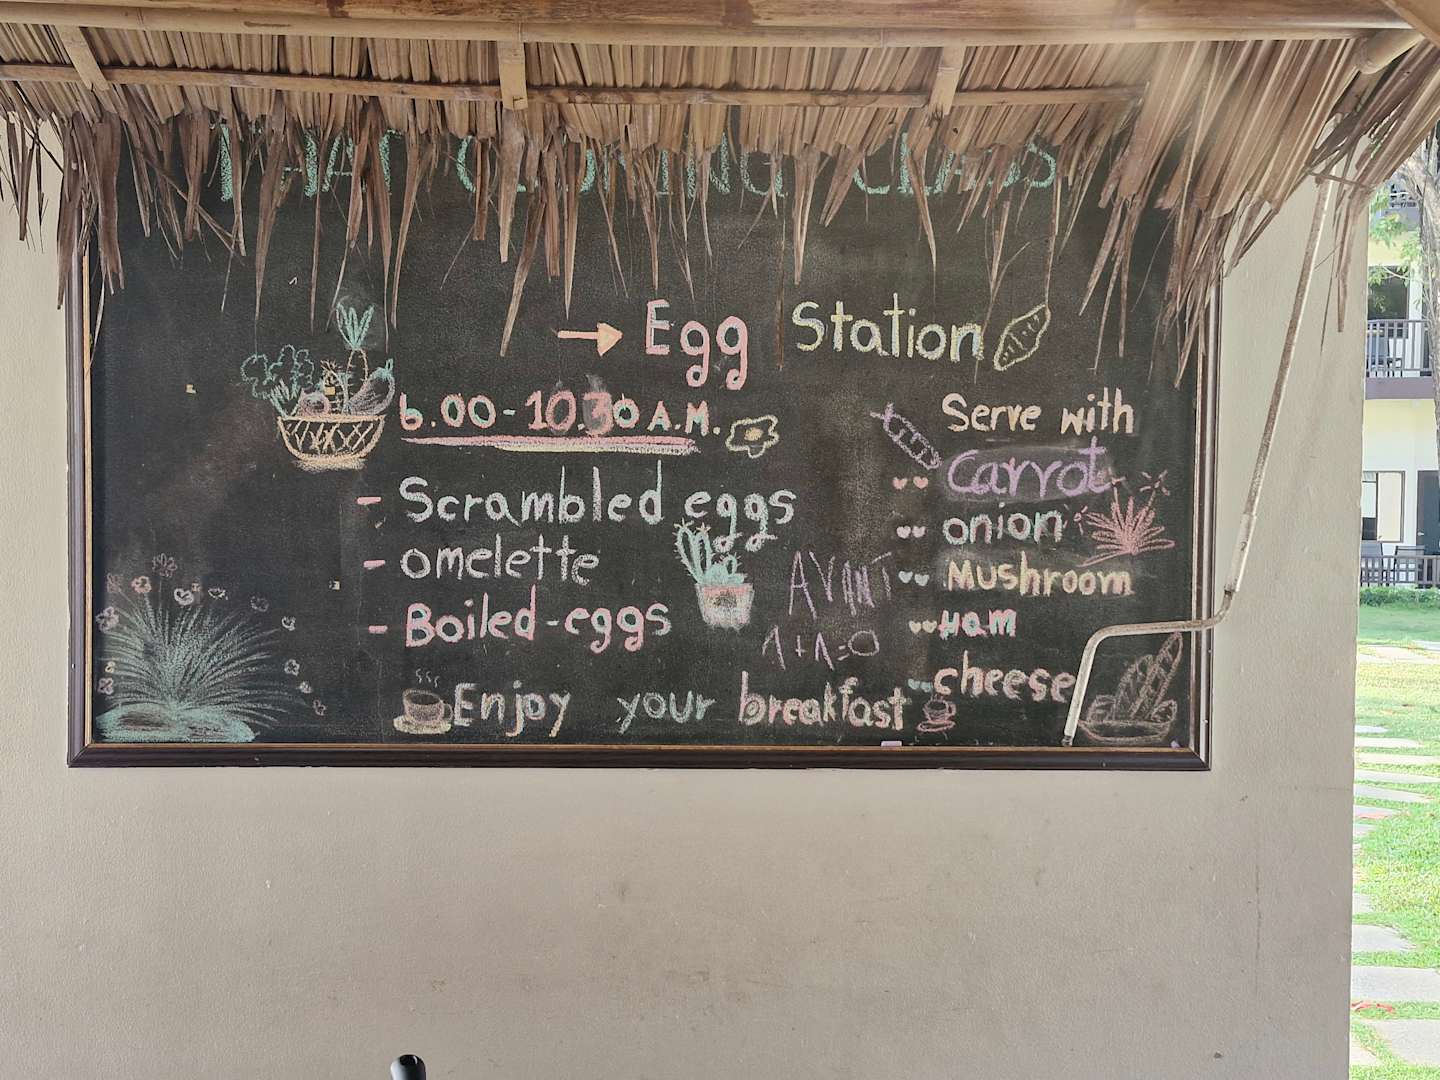 THAI COOKING CLASS
→ Egg Station
6.00-10.30 A.M.
- Scrambled eggs
- omelette
- Boiled-eggs
Enjoy your breakfast
Serve with
Carrot
onion
Mushroom
Ham
cheese
AVANT
1+1=0